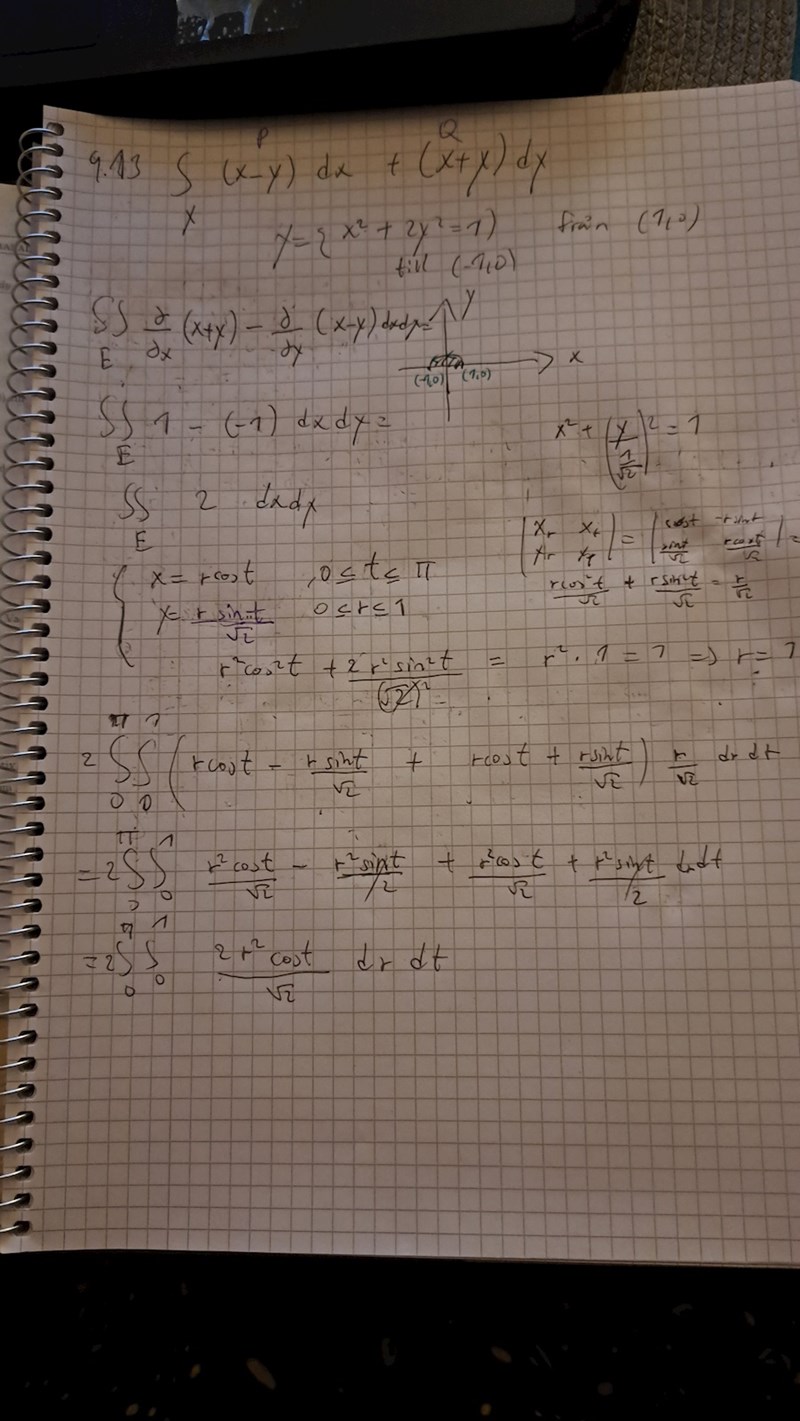 P Q
9.13 ∫ (x-y) dx + (x+y) dy
γ
γ = { x² + 2y² = 1 } från (1,0)
till (-1,0)
∬ ∂/∂x (x+y) - ∂/∂y (x-y) dxdy =
E
y
x
(-1,0) (1,0)
∬ 1 - (-1) dxdy =
E
x² + (y/(1/√2))² = 1
∬ 2 dxdy
E
|x_r x_t; y_r y_t| = |cost -rsint; sint/√2 rcost/√2| =
rcos²t/√2 + rsin²t/√2 = r/√2
{ x = rcost , 0 ≤ t ≤ π
y = r sint/√2 0 ≤ r ≤ 1
r²cos²t + 2r²sin²t/(√2)² = r² · 1 = 1 => r = 1
2 ∫₀^π ∫₀^1 (rcost - rsint/√2 + rcost + rsint/√2) r/√2 dr dt
= 2 ∫₀^π ∫₀^1 r²cost/√2 - r²sint/2 + r²cost/√2 + r²sint/2 drdt
= 2 ∫₀^π ∫₀^1 2r²cost/√2 dr dt